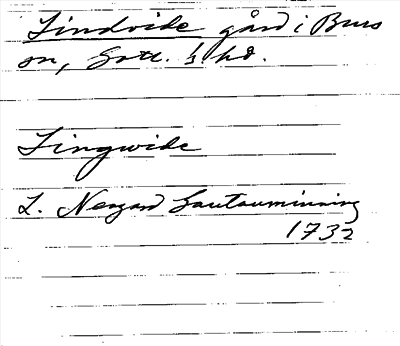 Lindvide gård i Burs
sn, Gotl. ½ hd.
Lingwide
L. Nergard Gautauminning
1732